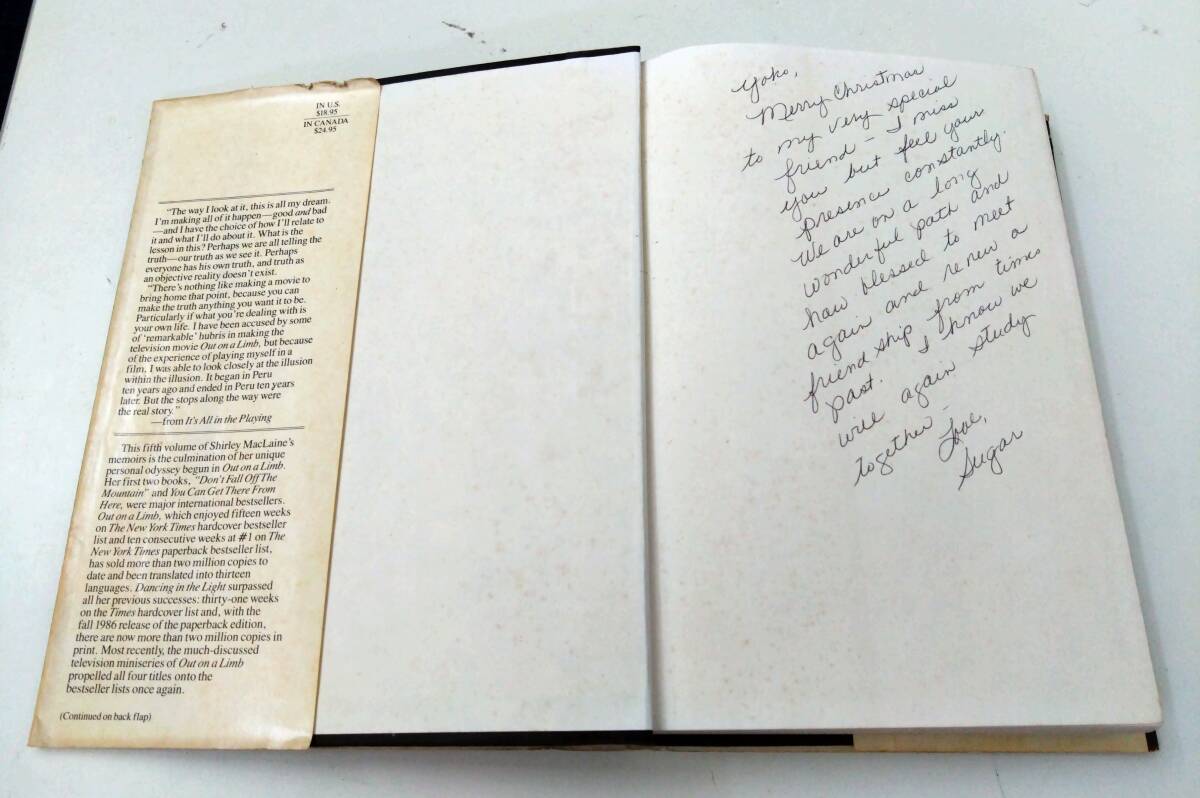 IN U.S.
$18.95
IN CANADA
$24.95
"The way I look at it, this is all my dream.
I'm making all of it happen—good and bad
—and I have the choice of how I'll relate to
it and what I'll do about it. What is the
lesson in this? Perhaps we are all telling the
truth—our truth as we see it. Perhaps
everyone has his own truth, and truth as
an objective reality doesn't exist.
"There's nothing like making a movie to
bring home that point, because you can
make the truth anything you want it to be.
Particularly if what you're dealing with is
your own life. I have been accused by some
of 'remarkable' hubris in making the
television movie Out on a Limb, but because
of the experience of playing myself in a
film, I was able to look closely at the illusion
within the illusion. It began in Peru
ten years ago and ended in Peru ten years
later. But the stops along the way were
the real story."
—from It's All in the Playing
This fifth volume of Shirley MacLaine's
memoirs is the culmination of her unique
personal odyssey begun in Out on a Limb.
Her first two books, "Don't Fall Off The
Mountain" and You Can Get There From
Here, were major international bestsellers.
Out on a Limb, which enjoyed fifteen weeks
on The New York Times hardcover bestseller
list and ten consecutive weeks at #1 on The
New York Times paperback bestseller list,
has sold more than two million copies to
date and been translated into thirteen
languages. Dancing in the Light surpassed
all her previous successes: thirty-one weeks
on the Times hardcover list and, with the
fall 1986 release of the paperback edition,
there are now more than two million copies in
print. Most recently, the much-discussed
television miniseries of Out on a Limb
propelled all four titles onto the
bestseller lists once again.
(Continued on back flap)
Yoko,
Merry Christmas
to my very special
friend - I miss
you but feel your
presence constantly.
We are on a long
wonderful path and
how blessed to meet
again and renew a
friendship from times
past. I know we
will again study
together - Love,
Sugar